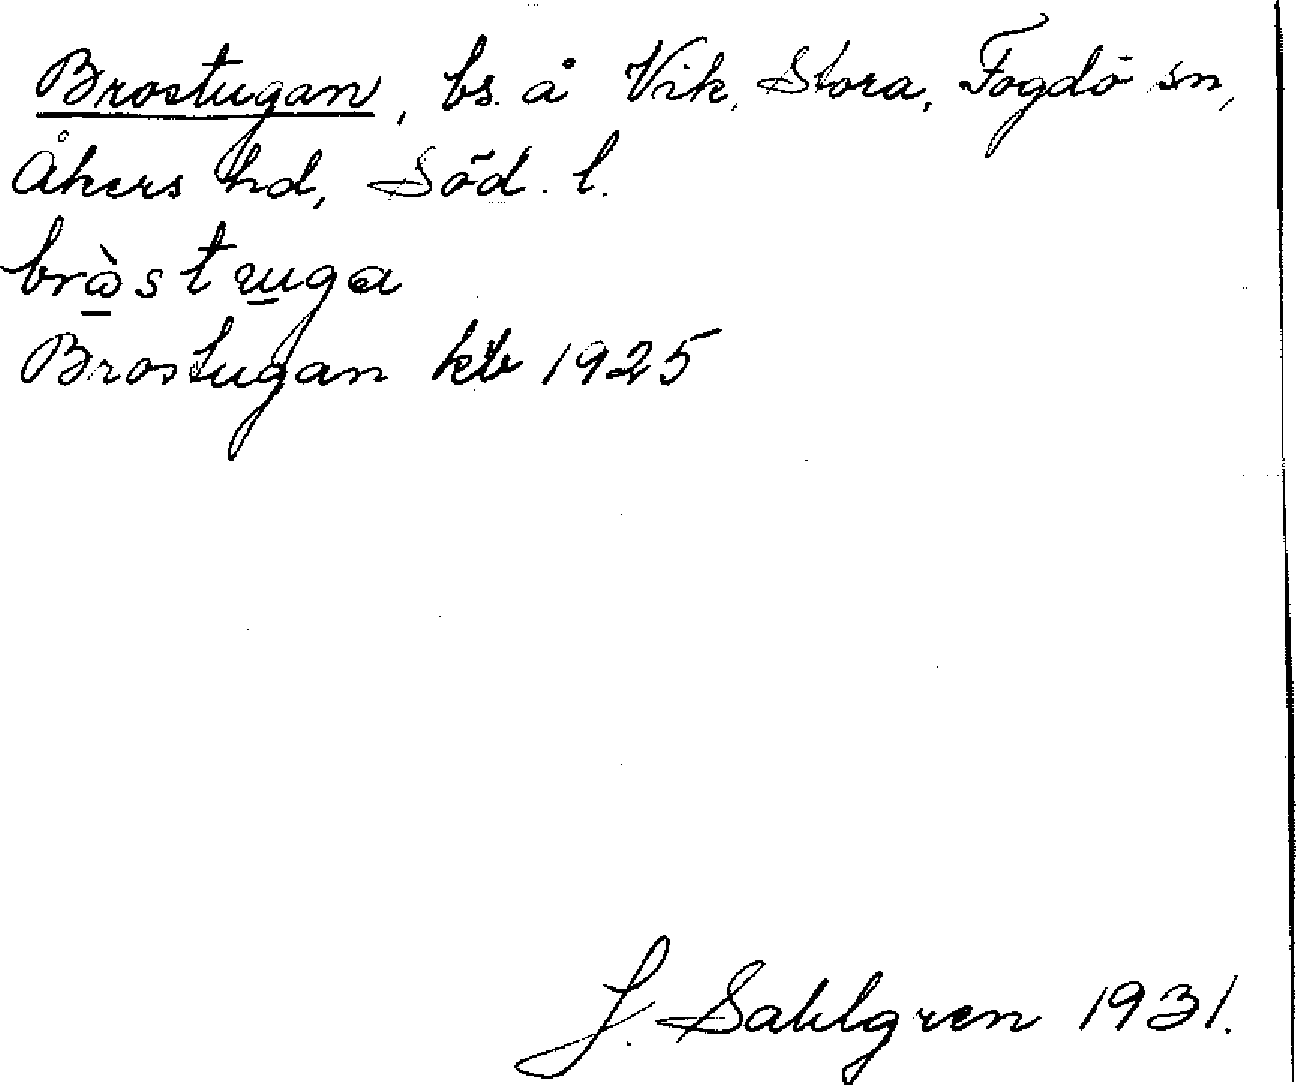 Brostugan, bs. å Vik, Stora, Fogdö sn,
Åkers hd, Söd. l.
Brostugan kb 1925
J. Sahlgren 1931.